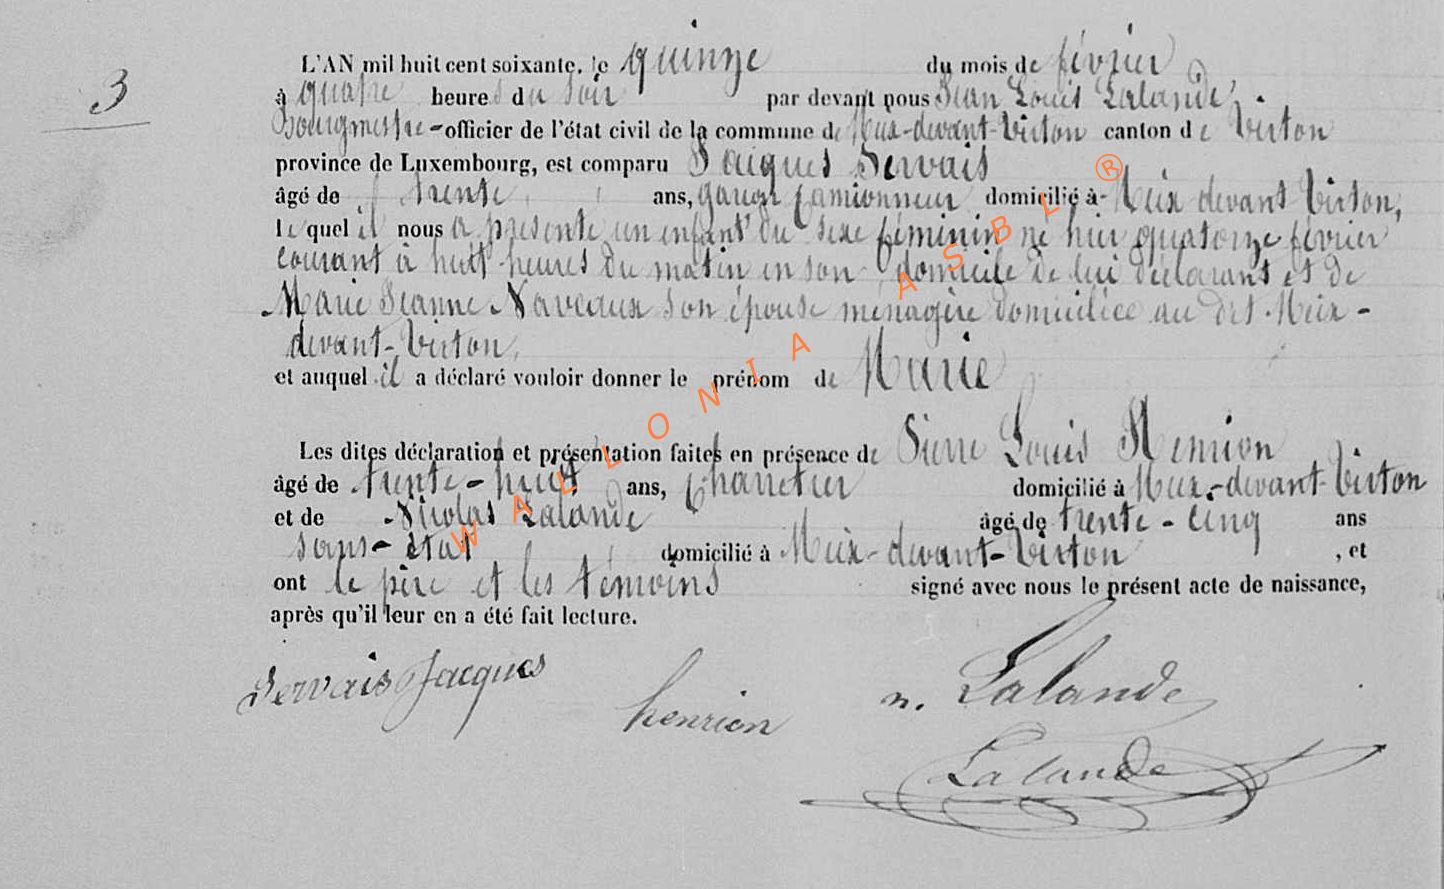 3
L'AN mil huit cent soixante, le quinze du mois de février
à quatre heures du soir par devant nous Jean Louis Lalande,
Bourgmestre-officier de l'état civil de la commune de Meix-devant-Virton canton de Virton
province de Luxembourg, est comparu Jacques Servais
âgé de trente ans, garçon camionneur domicilié à Meix devant Virton,
lequel il nous a présenté un enfant du sexe féminin né hier quatorze février
courant à huit heures du matin en son domicile de lui déclarant et de
Marie Jeanne Naveaux son épouse ménagère domiciliée au dit Meix-
devant-Virton,
et auquel il a déclaré vouloir donner le prénom de Marie
Les dites déclaration et présentation faites en présence de Pierre Louis Henrion
âgé de trente-huit ans, Charretier domicilié à Meix-devant-Virton
et de Nicolas Lalande âgé de trente-cinq ans
sans-état domicilié à Meix-devant-Virton , et
ont le père et les témoins signé avec nous le présent acte de naissance,
après qu'il leur en a été fait lecture.
Servais Jacques
henrion
n. Lalande
Lalande
WALLONIA ASBL ®